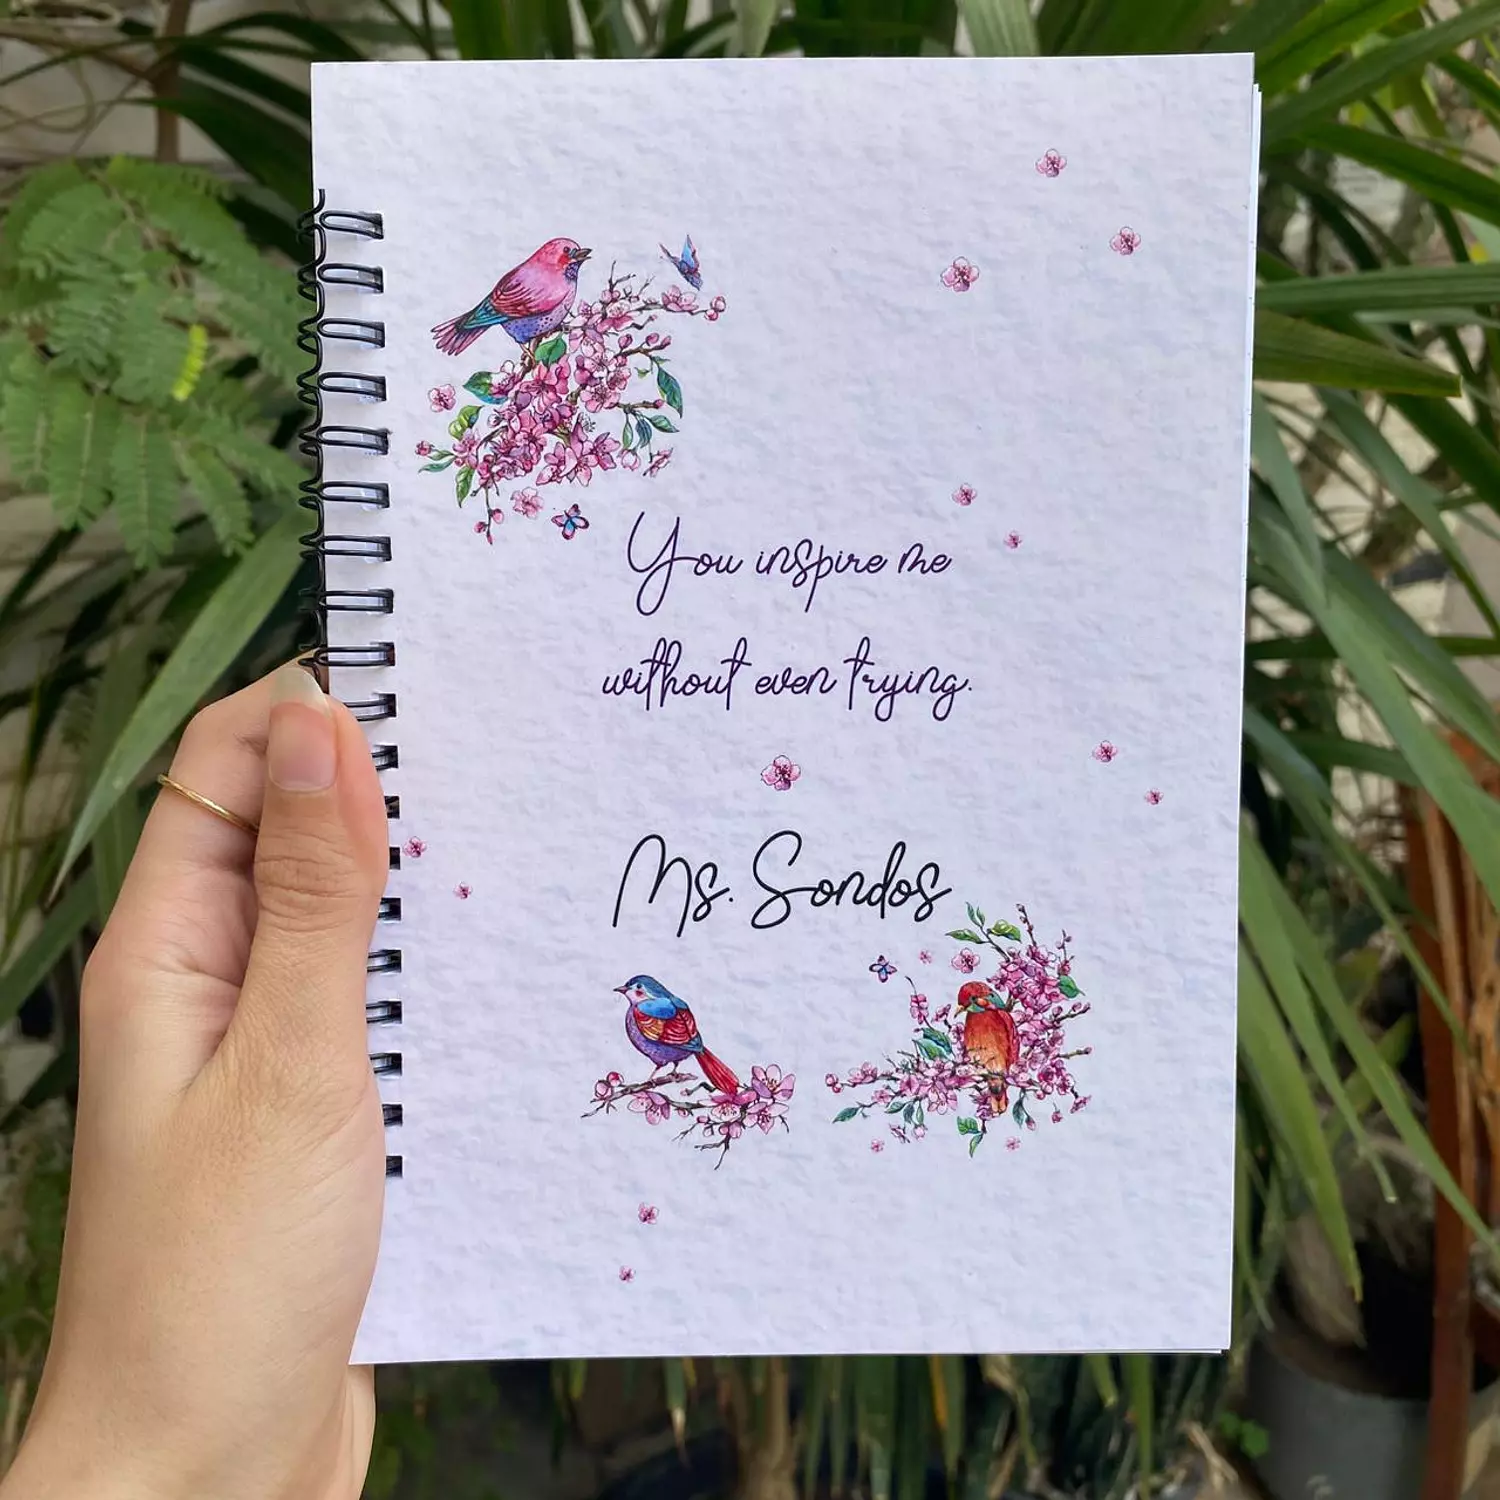 You inspire me
without even trying.
Ms. Sondos